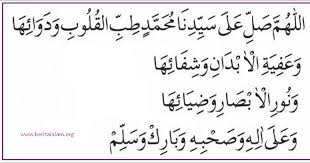 اَللّٰهُمَّ صَلِّ عَلَى سَيِّدِنَا مُحَمَّدٍ طِبِّ الْقُلُوْبِ وَدَوَائِهَا
وَعَفِيَةِ الْاَبْدَانِ وَشِفَائِهَا
وَنُوْرِ الْاَبْصَارِ وَضِيَائِهَا
وَعَلَى اٰلِهِ وَصَحْبِهِ وَبَارِكْ وَسَلِّمْ
www.beritaislam.org